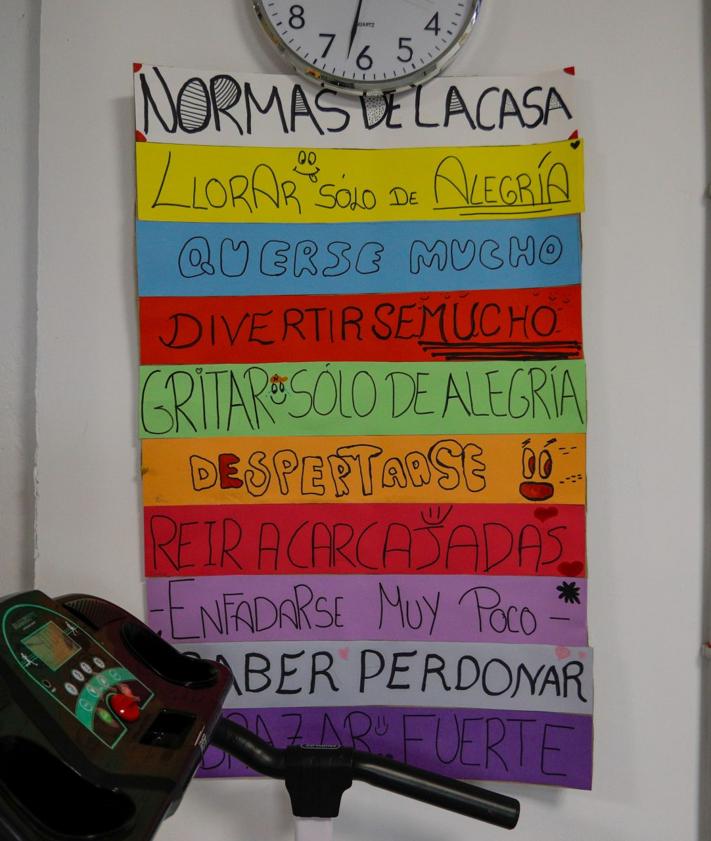 8 7 6 5 4
QUARTZ
NORMAS DE LA CASA
LLORAR SÓLO DE ALEGRÍA
QUERSE MUCHO
DIVERTIRSE MUCHO
GRITAR SÓLO DE ALEGRÍA
DESPERTARSE
REIR A CARCAJADAS
-ENFADARSE MUY POCO-
SABER PERDONAR
FUERTE